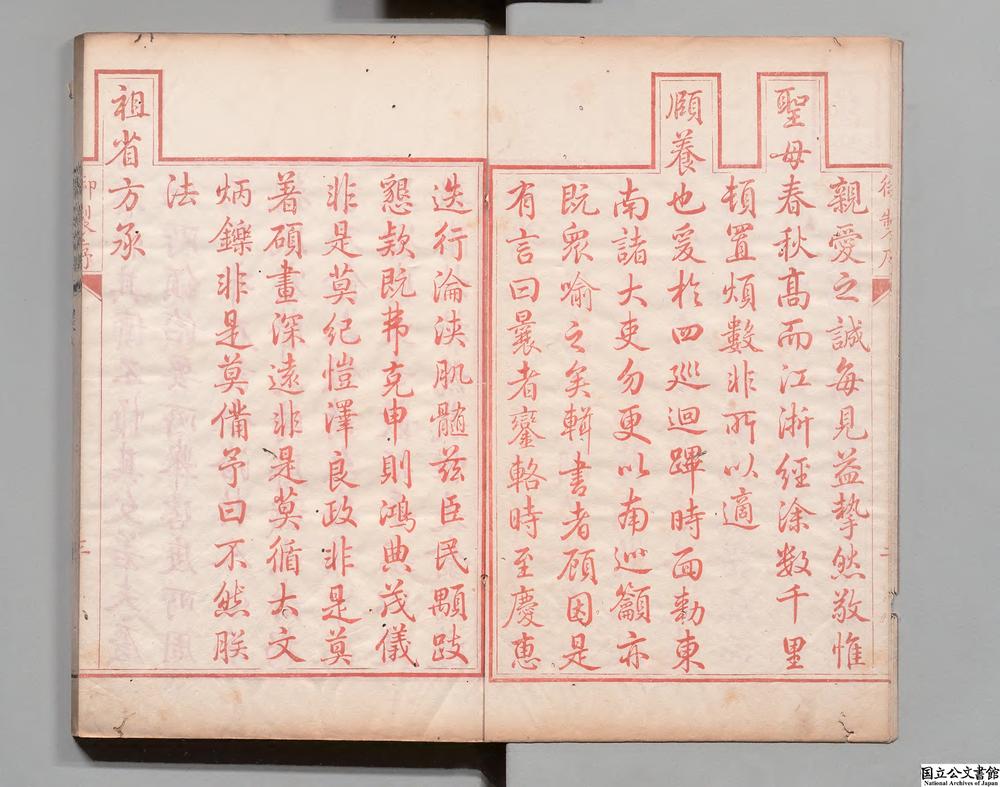 親愛之誠每見益摯然敬惟
聖母春秋高而江浙經涂數千里
頓置煩數非所以適
頤養也爰於四巡迴蹕時面勅東
南諸大吏勿更以南巡籲亦
既衆喻之矣輯書者顧因是
有言曰曩者鑾輅時至慶惠
迭行淪浹肌髓茲臣民顒跂
懇欵既弗克申則鴻典茂儀
非是莫紀愷澤良政非是莫
著碩畫深遠非是莫循大文
炳鑠非是莫備予曰不然朕
法
祖省方承
御製序
御製序
国立公文書館
National Archives of Japan